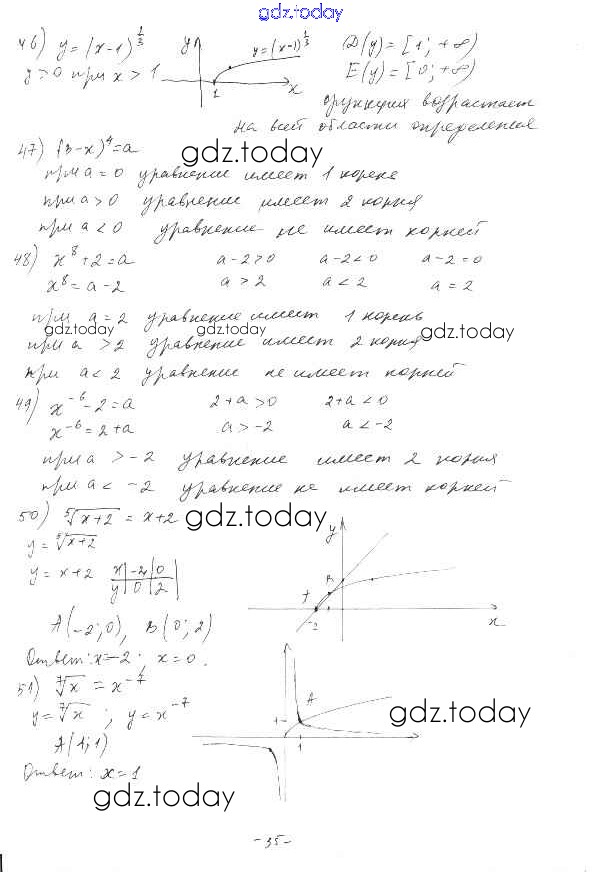 gdz.today
46) y = (x-1)^(1/3) y y = (x-1)^(1/3) D(y) = [1; +∞)
y > 0 при x > 1 1 x E(y) = [0; +∞)
функция возрастает
на всей области определения
47) (3-x)^4 = a
gdz.today
при a = 0 уравнение имеет 1 корень
при a > 0 уравнение имеет 2 корня
при a < 0 уравнение не имеет корней
48) x^8 + 2 = a a-2>0 a-2<0 a-2=0
x^8 = a-2 a > 2 a < 2 a = 2
при a = 2 уравнение имеет 1 корень
gdz.today gdz.today gdz.today
при a > 2 уравнение имеет 2 корня
при a < 2 уравнение не имеет корней
49) x^-6 - 2 = a 2+a > 0 2+a < 0
x^-6 = 2+a a > -2 a < -2
при a > -2 уравнение имеет 2 корня
при a < -2 уравнение не имеет корней
50) ⁵√x+2 = x+2 gdz.today
y = ⁵√x+2 y
y = x+2 x | -2 | 0
y | 0 | 2
A B -2 x
A(-2; 0), B(0; 2)
Ответ: x=-2; x=0.
51) ⁷√x = x^-7
y = ⁷√x ; y = x^-7 A 1 1
gdz.today
A(1; 1)
Ответ: x=1
gdz.today
-35-